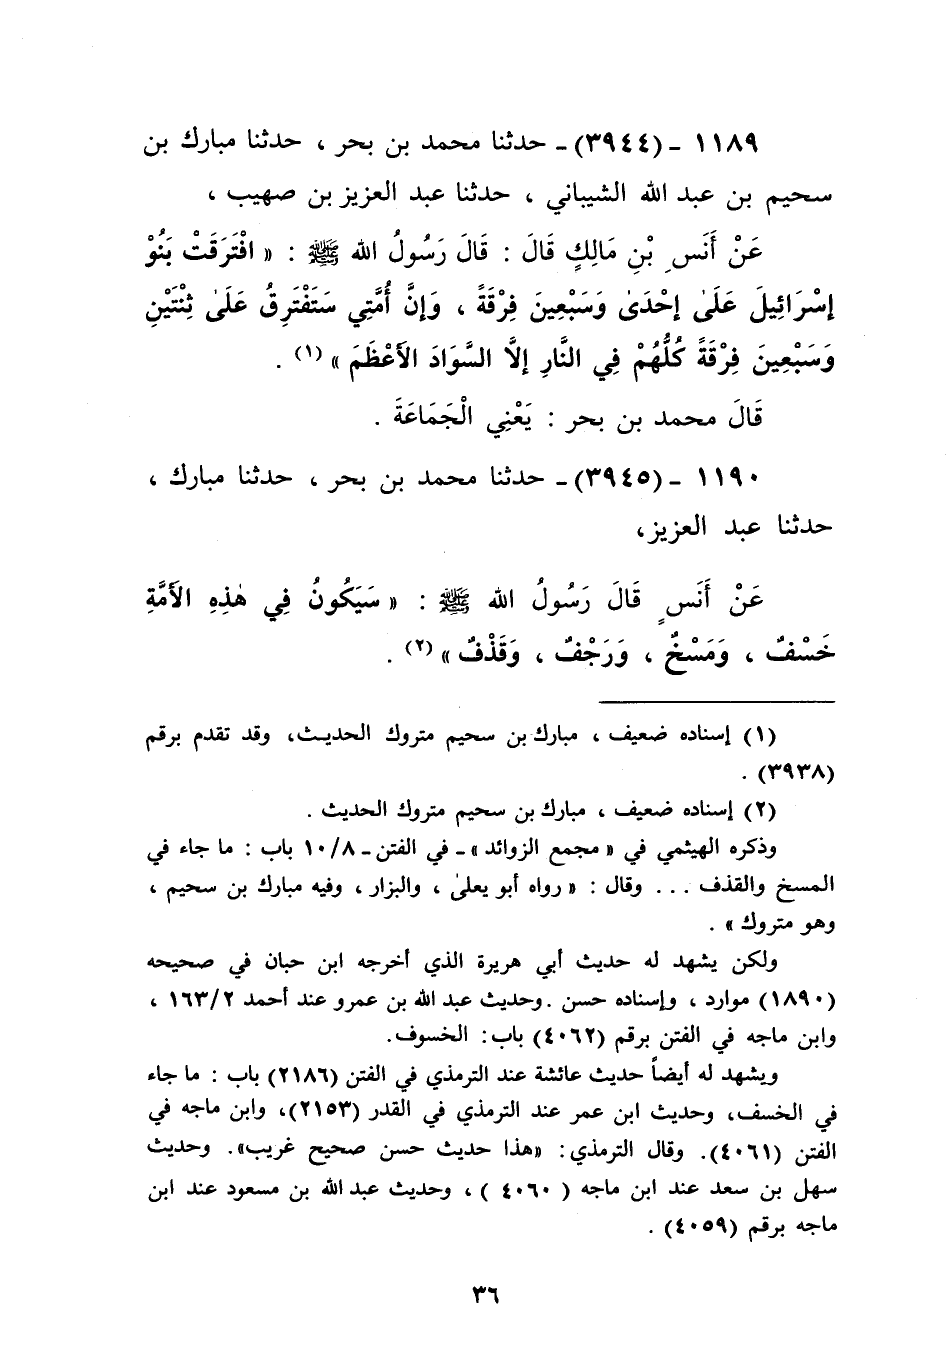 ١١٨٩ - (٣٩٤٤) - حدثنا محمد بن بحر ، حدثنا مبارك بن
سحيم بن عبد الله الشيباني ، حدثنا عبد العزيز بن صهيب ،
عَنْ أَنَسِ بْنِ مَالِكٍ قَالَ : قَالَ رَسُولُ الله ﷺ : « افْتَرَقَتْ بَنُوْ
إِسْرَائِيلَ عَلَىٰ إِحْدَىٰ وَسَبْعِينَ فِرْقَةً ، وَإِنَّ أُمَّتِي سَتَفْتَرِقُ عَلَىٰ ثِنْتَيْنِ
وَسَبْعِينَ فِرْقَةً كُلُّهُمْ فِي النَّارِ إِلَّا السَّوَادَ الأَعْظَمَ » (١) .
قَالَ محمد بن بحر : يَعْنِي الْجَمَاعَةَ .
١١٩٠ - (٣٩٤٥) - حدثنا محمد بن بحر ، حدثنا مبارك ،
حدثنا عبد العزيز،
عَنْ أَنَسٍ قَالَ رَسُولُ الله ﷺ : « سَيَكُونُ فِي هٰذِهِ الأُمَّةِ
خَسْفٌ ، وَمَسْخٌ ، وَرَجْفٌ ، وَقَذْفٌ » (٢) .
(١) إسناده ضعيف ، مبارك بن سحيم متروك الحديث، وقد تقدم برقم
(٣٩٣٨) .
(٢) إسناده ضعيف ، مبارك بن سحيم متروك الحديث .
وذكره الهيثمي في « مجمع الزوائد » - في الفتن - ١٠/٨ باب : ما جاء في
المسخ والقذف ... وقال : « رواه أبو يعلىٰ ، والبزار ، وفيه مبارك بن سحيم ،
وهو متروك » .
ولكن يشهد له حديث أبي هريرة الذي أخرجه ابن حبان في صحيحه
(١٨٩٠) موارد ، وإسناده حسن . وحديث عبد الله بن عمرو عند أحمد ١٦٣/٢ ،
وابن ماجه في الفتن برقم (٤٠٦٢) باب: الخسوف.
ويشهد له أيضاً حديث عائشة عند الترمذي في الفتن (٢١٨٦) باب : ما جاء
في الخسف، وحديث ابن عمر عند الترمذي في القدر (٢١٥٣)، وابن ماجه في
الفتن (٤٠٦١). وقال الترمذي: «هذا حديث حسن صحيح غريب». وحديث
سهل بن سعد عند ابن ماجه ( ٤٠٦٠ ) ، وحديث عبد الله بن مسعود عند ابن
ماجه برقم (٤٠٥٩) .
٣٦